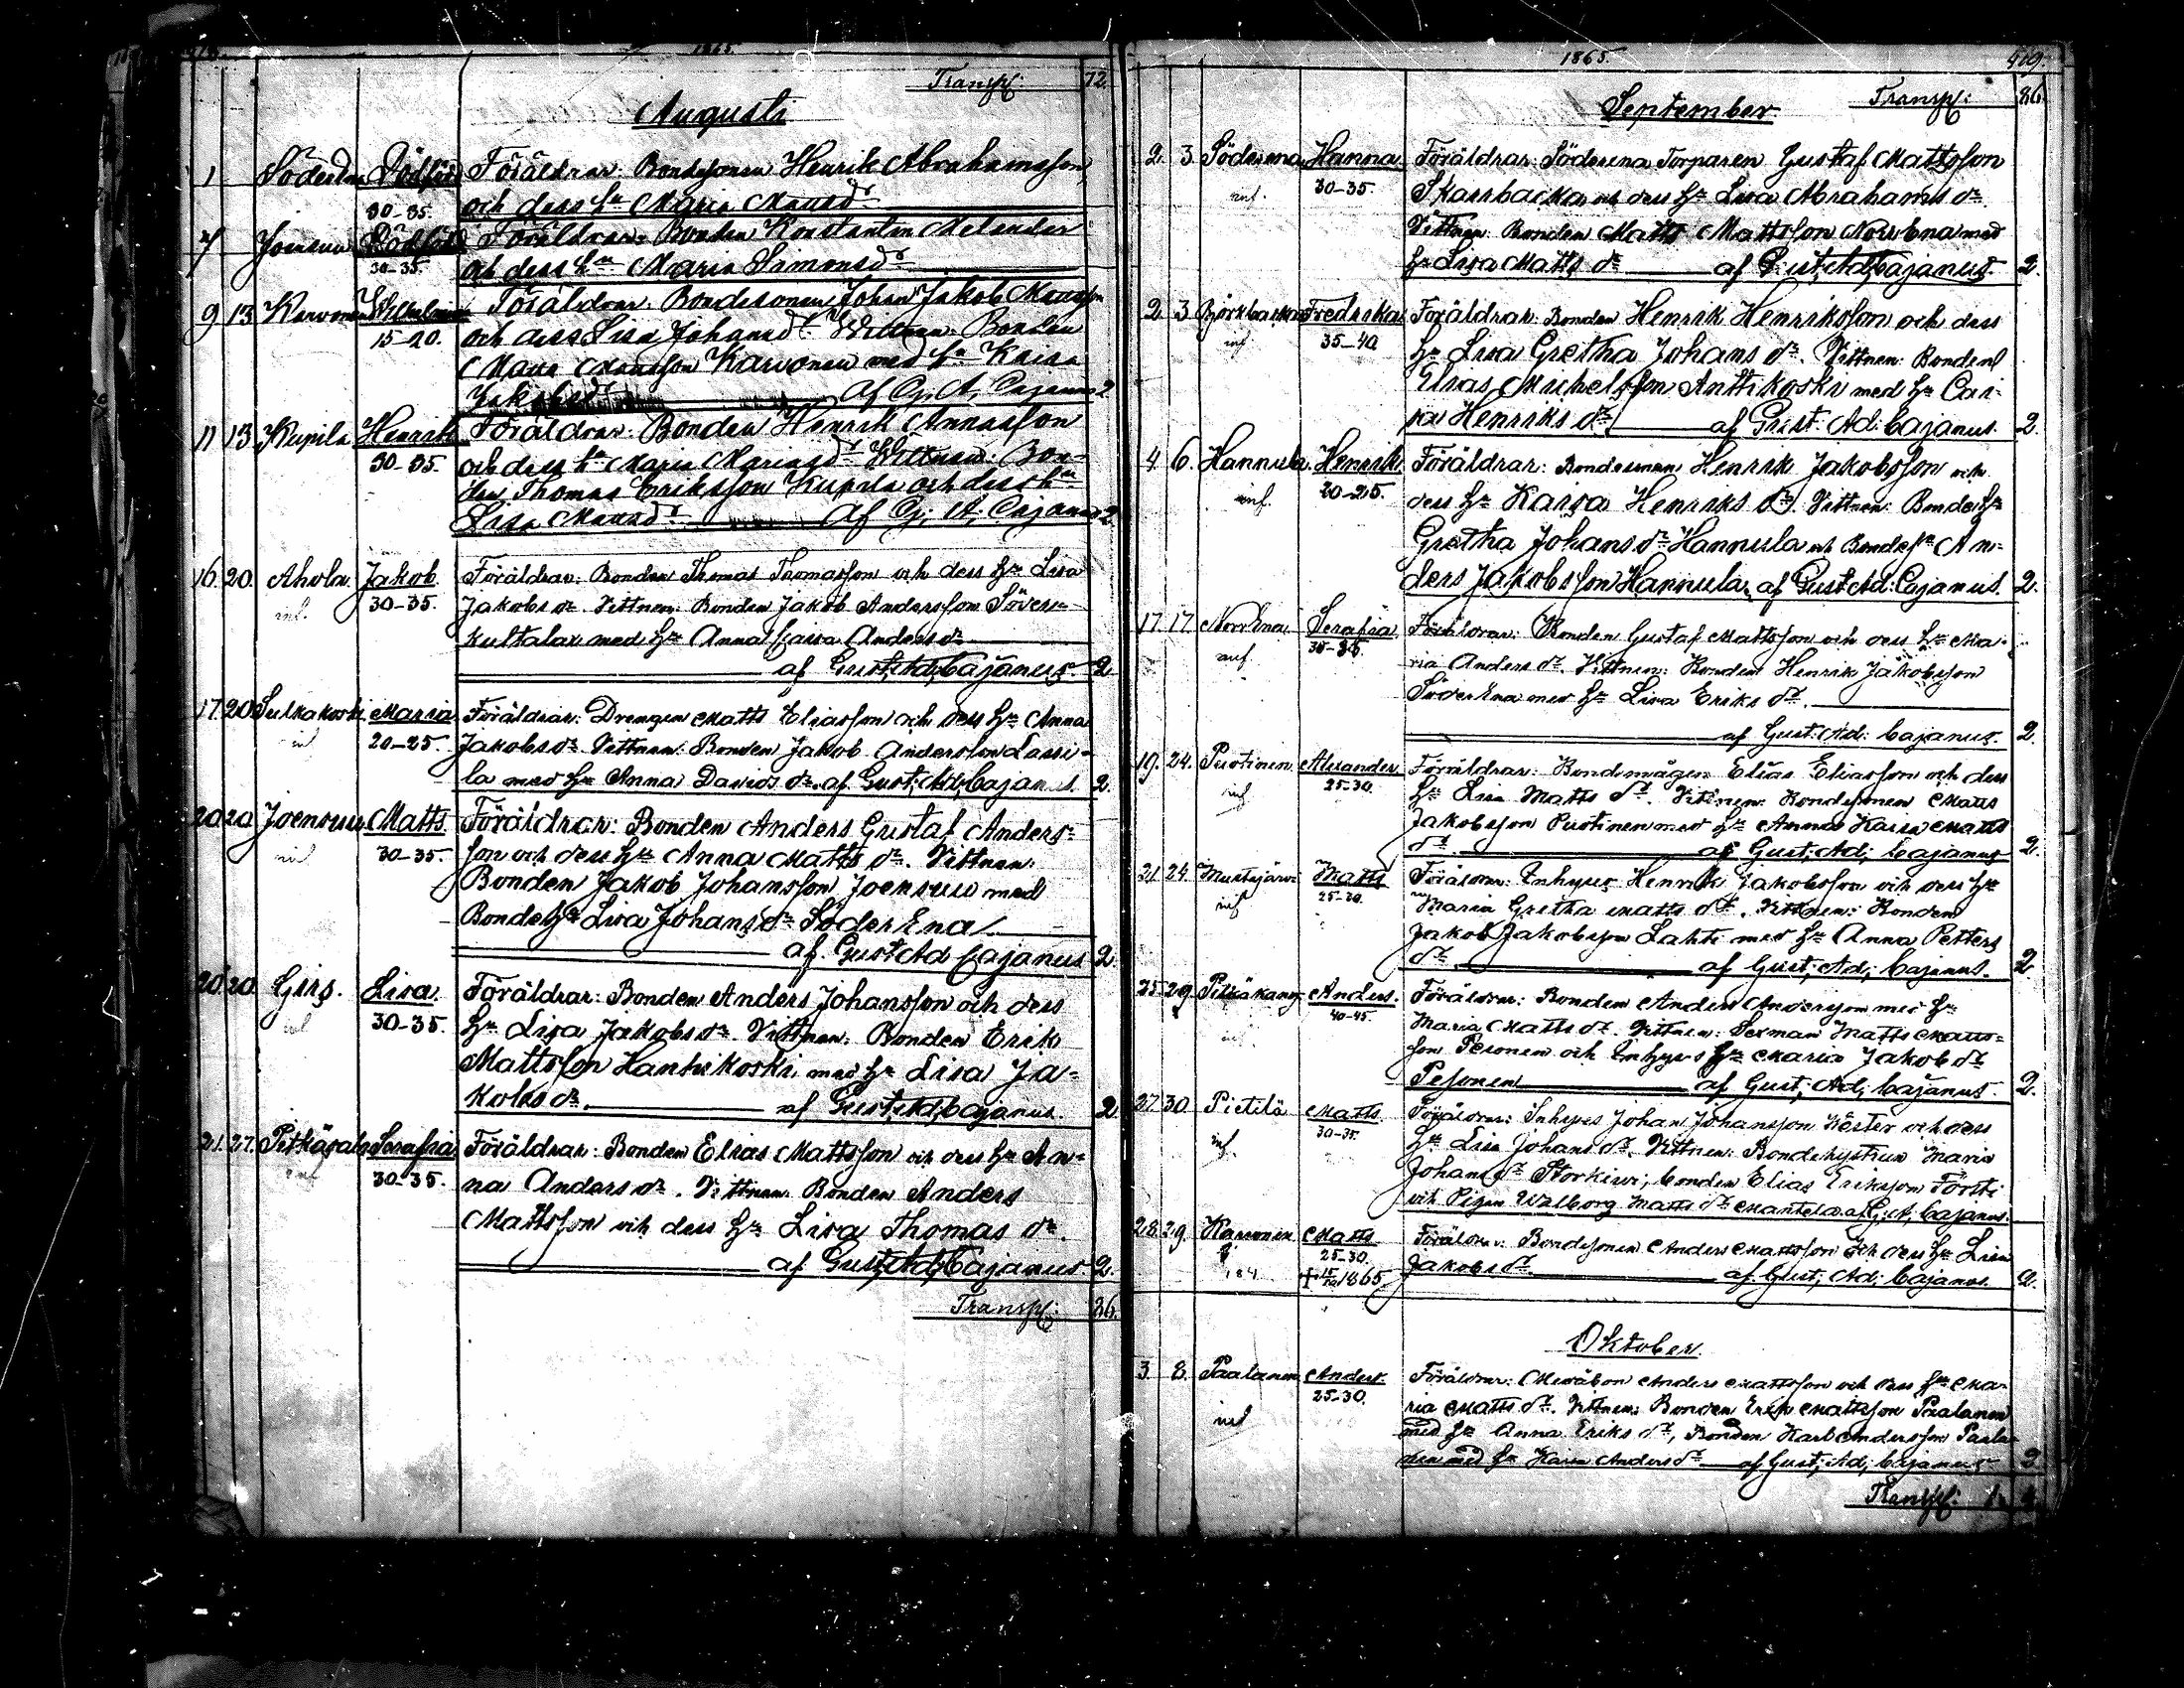 1865.
Transp: 72.
Augusti
1 Söderena Dödfödd Föräldrar: Bondesonen Henrik Abrahamsson
30-35. och dess hu Maria Mattsdr
7 Joensuu Dödfödd Föräldrar: Bonden Konstantin Melender
30-35. och dess hu Maria Simonsdr
9 13 Karvonen Wilhelmina Föräldrar: Bondesonen Johan Jakob Mattsson
15-20. och dess Lisa Johansdr Wittnen: Bonden
Matts Mattsson Karvonen med hu Kaisa
Jakobsdr af G; A; Cajanus 2
11 13 Kupila Henrik Föräldrar: Bonden Henrik
30-35. och dess hu Maria Wittnen: Bon-
den Thomas Eriksson Kupila och dess hu
Lisa Mattsdr af G; A; Cajanus 2
16. 20. Ahola Jakob Föräldrar: Bonden Thomas Thomasson och dess hu Lisa
inf. 30-35. Jakobs dr. Vittnen: Bonden Jakob Andersson Söder-
kultalax med hu Anna Caisa Anders dr
af Gust; Ad; Cajanus. 2
17. 20 Sulkakoski Maria Föräldrar: Drengen Matts Eliasson och dess hu Anna
20-25. Jakobs dr. Vittnen: Bonden Jakob Andersson Lassi-
la med hu Anna Davids dr. af Gust; Ad; Cajanus. 2.
20 20 Joensuu Matts Föräldrar: Bonden Anders Gustaf Anders-
30-35. son och dess hu Anna Matts dr. Vittnen:
Bonden Jakob Johansson Joensuu med
Bondehu Lisa Johans dr Söder Ena
af Gust Ad Cajanus 2.
20 20 Girs. Lisa. Föräldrar: Bonden Anders Johansson och dess
30-35. hu Lisa Jakobs dr. Vittnen: Bonden Erik
Mattsson Hanhikoski med hu Lisa Ja-
kobs dr. af Gust; Ad; Cajanus. 2
21. 27. Pitkäsalo Serafia Föräldrar: Bonden Elias Mattsson och dess hu An-
inf 30-35. na Anders dr. Vittnen: Bonden Anders
Mattsson och dess hu Lisa Thomas dr.
af Gust; Ad; Cajanus 2.
Transp: 86.
1865. 419.
Transp: 86.
September
2. 3. Söderena Hanna Föräldrar: Söderena Torparen Gustaf Mattsson
inf. 30-35. Skarrbacka och dess hu Lisa Abrahams dr.
Vittnen: Bonden Matts Mattsson Norrena med
hu Lisa Matts dr af Gust; Ad; Cajanus. 2.
2. 3. Björkbacka Fredrika Föräldrar: Bonden Henrik Henriksson och dess
inf. 35-40 hu Lisa Gretha Johans dr. Vittnen: Bonden
Elias Michelsson Anttikoski med hu Cai-
sa Henriks dr af Gust: Ad: Cajanus. 2.
4. 6. Hannula Henrik Föräldrar: Bondesonen Henrik Jakobsson och
inf. 20-25. dess hu Kaisa Henriks dr. Vittnen: Bondehu
Gretha Johans dr Hannula och Bondes An-
ders Jakobsson Hannula af Gust: Ad: Cajanus. 2.
17. 17. Norrena Serafia Föräldrar: Bonden Gustaf Mattsson och dess hu Ma-
30-35. ria Anders dr. Vittnen: Bonden Henrik Jakobsson
Söder Ena med hu Lisa Eriks dr.
af Gust: Ad: Cajanus. 2.
19. 24. Puotinen Alexander Föräldrar: Bondemågen Elias Eliasson och dess
inf 25-30. hu Lisa Matts dr. Vittnen: Bondesonen Matts
Jakobsson Puotinen med hu Anna Kaisa Matts
dr. af Gust; Ad; Cajanus 2.
21. 24. Mustajärvi Matts Föräldrar: Inhyses Henrik Jakobsson och dess hu
inf 25-30. Maria Gretha Matts dr. Vittnen: Bonden
Jakob Jakobsson Lahti med hu Anna Petters
dr. af Gust; Ad; Cajanus. 2.
25. 29. Pitkäkang. Anders. Föräldrar: Bonden Anders Andersson med hu
40-45. Maria Matts dr. Vittnen: Sexman Matts Matts-
son Pesonen och Inhyses hu Maria Jakob dr
Pesonen af Gust; Ad; Cajanus. 2.
27. 30 Pietilä Matts. Föräldrar: Inhyses Johan Johansson Wester och dess
inf. 30-35. hu Lisa Johans dr. Vittnen: Bondehustrun Maria
Johans dr Storkiwi, bonden Elias Eriksson Försti
och Pigan Walborg Matts dr Mantela af G; A; Cajanus.
28. 29. Karvonen Matts Föräldrar: Bondesonen Anders Mattsson och dess hu Lisa
25-30. Jakobs dr. af Gust; Ad; Cajanus. 2.
1865
Oktober.
3. 8. Paalanen Anders. Föräldrar: Anders Mattsson och dess hu Ma-
inf 25-30. ria Matts dr. Vittnen: Bonden Erik Mattsson Paalanen
med hu Anna Eriks dr, Bonden Karl Andersson Paala-
nen med hu Kaisa Anders dr af Gust; Ad; Cajanus 2.
Transp: